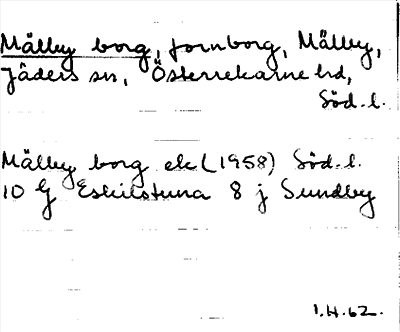 Mälby borg, fornborg, Mälby,
Jäders sn, Österrekarne hd,
Söd. l.
Mälby borg ek (1958) Söd. l.
10 G Eskilstuna 8 j Sundby
1.H.62.